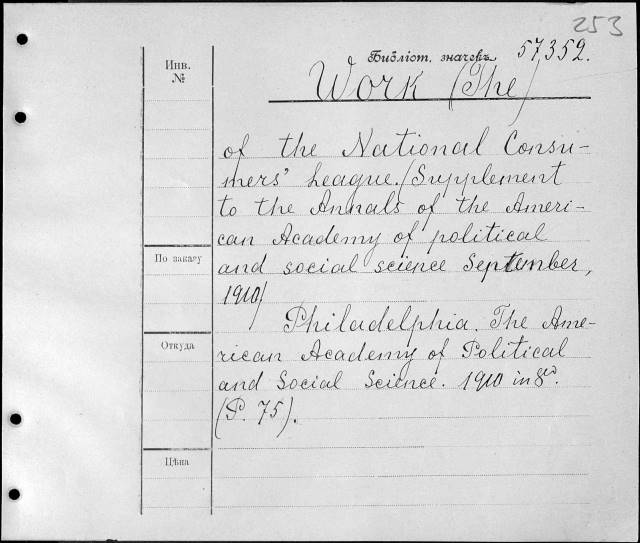 253
Библіот. значекъ 57,352.
Инв.
№
Work (The)
of the National Consu-
mers' League. (Supplement
to the Annals of the Ameri-
can Academy of political
По заказу
and social science September,
1910)
Philadelphia. The Ame-
Откуда
rican Academy of Political
and Social Science. 1910 in 8vo.
(P. 75).
Цѣна